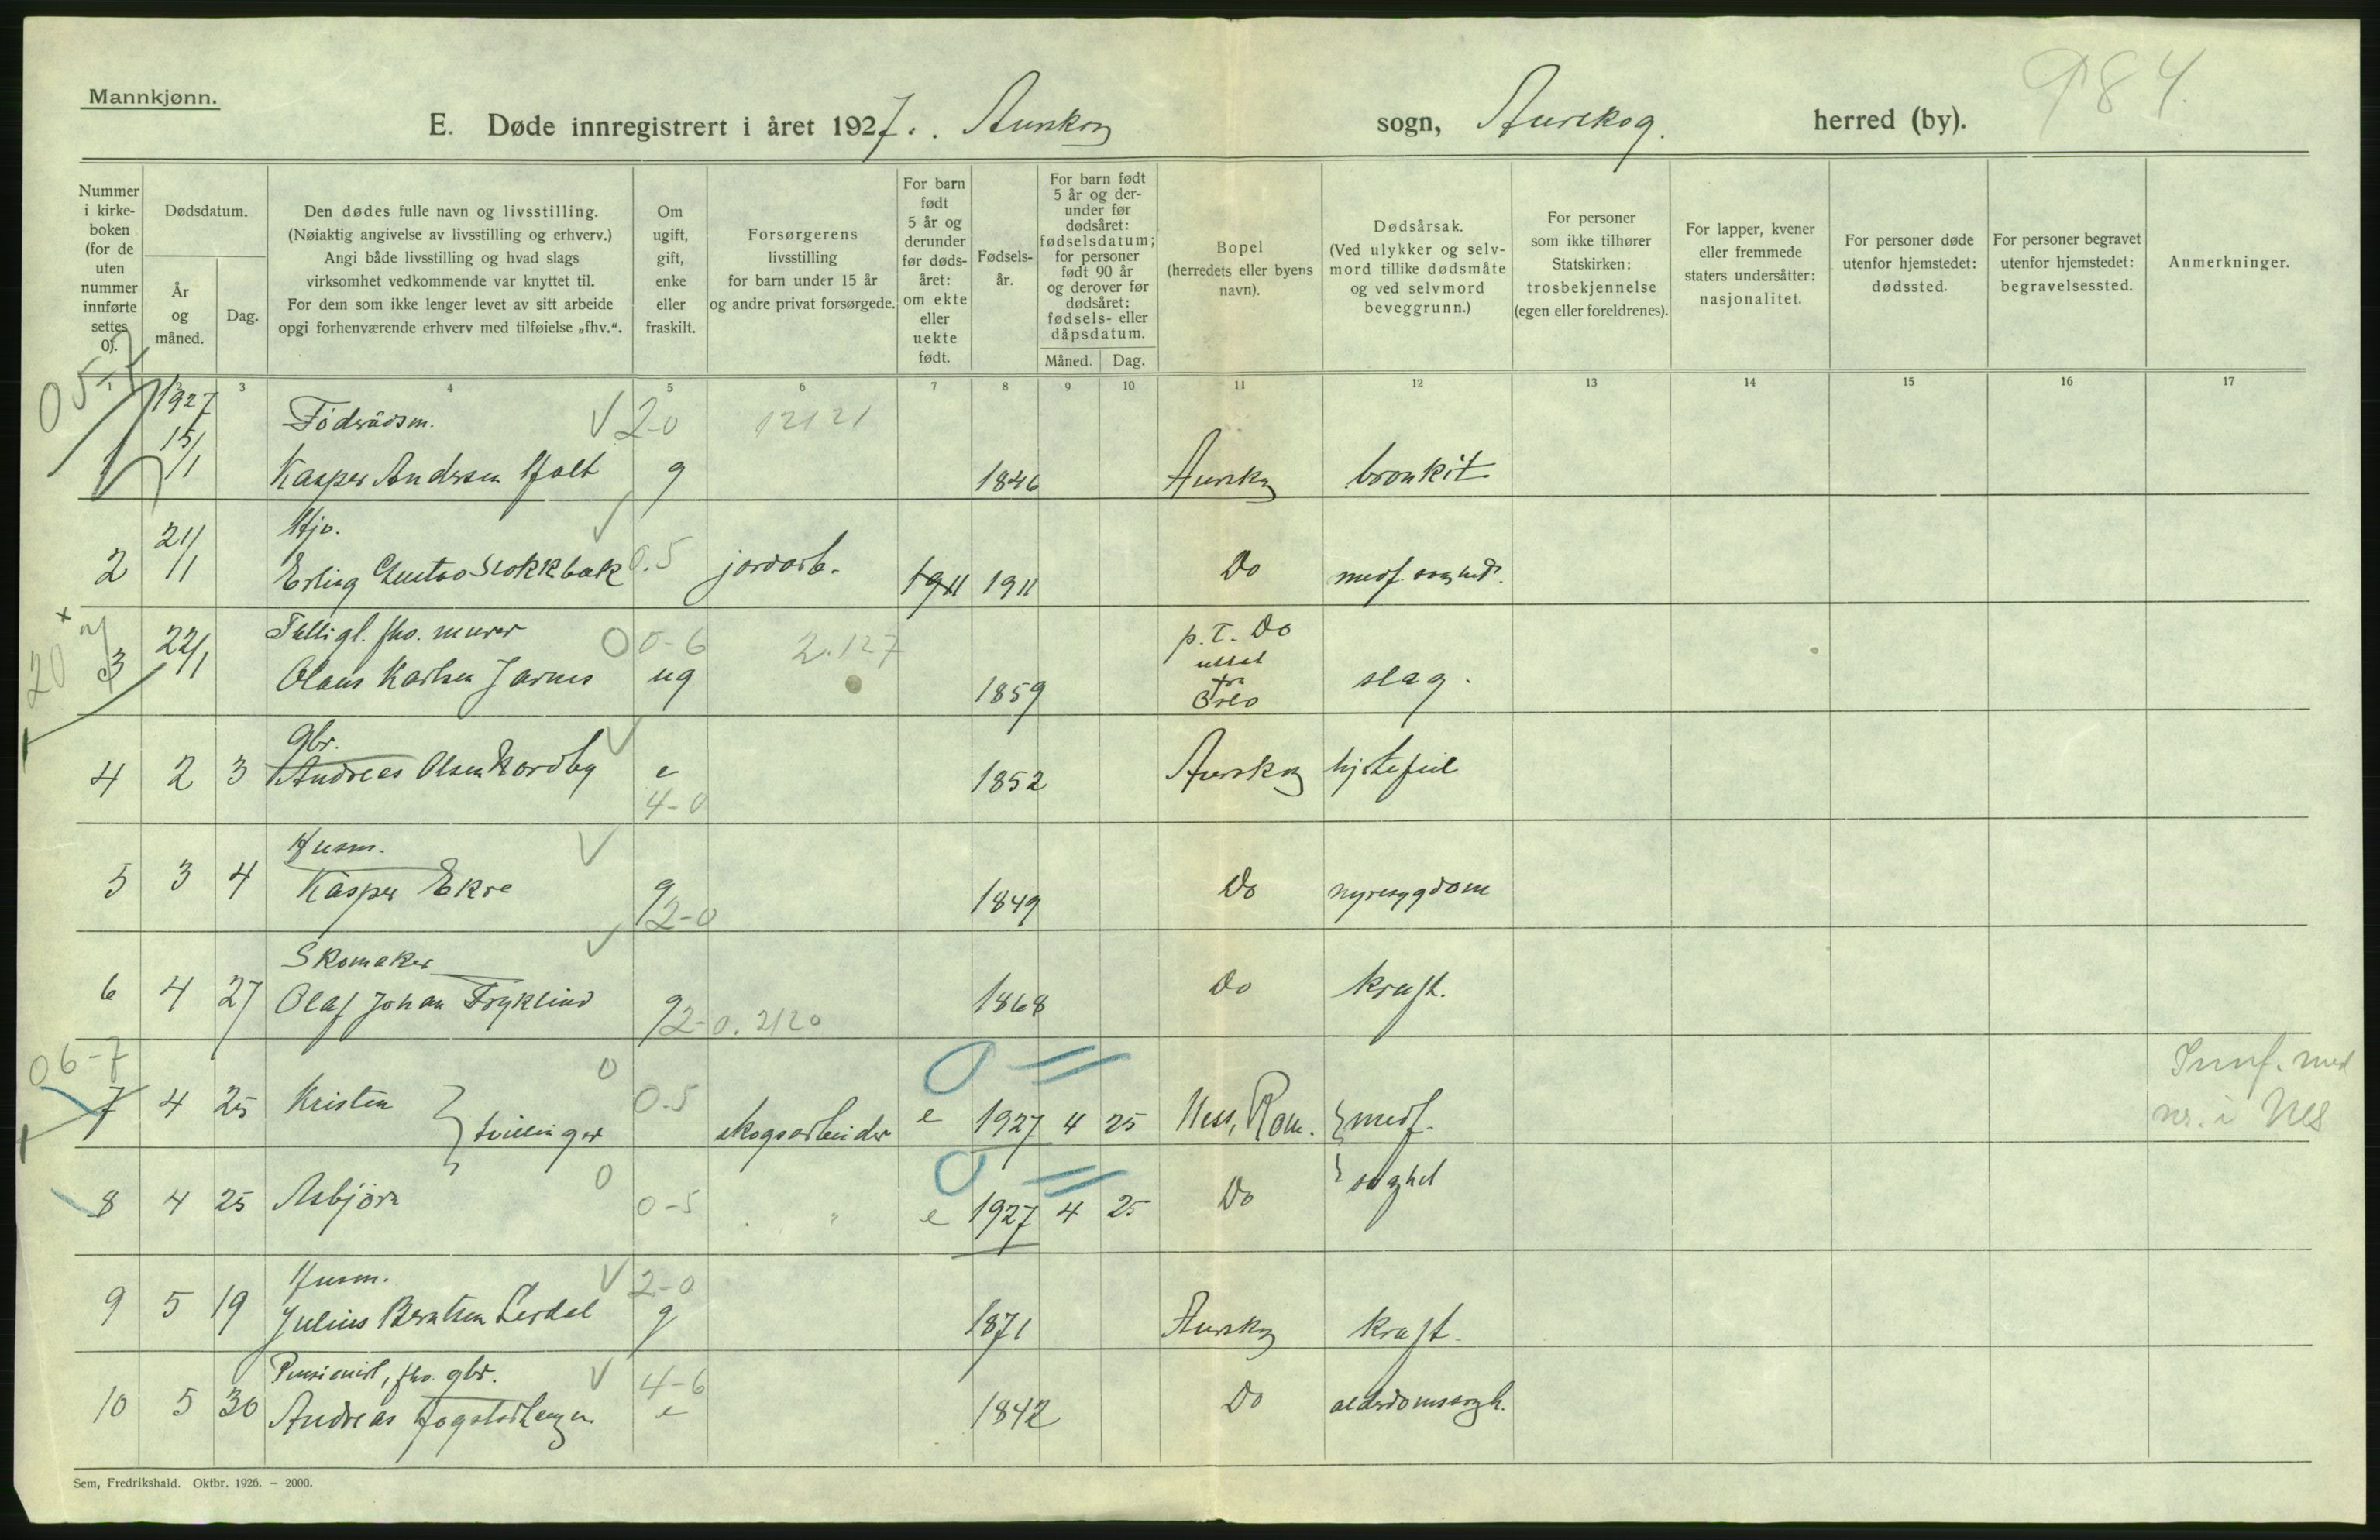 Mannkjønn.
984.
E. Døde innregistrert i året 1927. Aurskog sogn, Aurskog. herred (by).
Nummer i kirke-boken (for de uten nummer innførte settes 0).
Dødsdatum.
År og måned.
Dag.
Den dødes fulle navn og livsstilling.
(Nøiaktig angivelse av livsstilling og erhverv.)
Angi både livsstilling og hvad slags
virksomhet vedkommende var knyttet til.
For dem som ikke lenger levet av sitt arbeide
opgi forhenværende erhverv med tilføielse „fhv.“.
Om ugift, gift, enke eller fraskilt.
Forsørgerens
livsstilling
for barn under 15 år
og andre privat forsørgede.
For barn født 5 år og derunder før døds-året: om ekte eller uekte født.
Fødsels-år.
For barn født 5 år og der-under før dødsåret: fødselsdatum; for personer født 90 år og derover før dødsåret: fødsels- eller dåpsdatum.
Måned. Dag.
Bopel
(herredets eller byens
navn).
Dødsårsak.
(Ved ulykker og selv-
mord tillike dødsmåte
og ved selvmord
beveggrunn.)
For personer
som ikke tilhører
Statskirken:
trosbekjennelse
(egen eller foreldrenes).
For lapper, kvener
eller fremmede
staters undersåtter:
nasjonalitet.
For personer døde
utenfor hjemstedet:
dødssted.
For personer begravet
utenfor hjemstedet:
begravelsessted.
Anmerkninger.
1 3 4 5 6 7 8 9 10 11 12 13 14 15 16 17
05-7
1927 Föderådsm. V 2-0 12121
1 15/1 Kasper Andersen Holt g 1846 Aurskog bronkit
Hjv. V
2 21/1 Erling Gustav Stokkbæk 0.5 jordarb. 1911 1911 Do medf. svaghed.
20 x
Tilligl. fhv. murer 0 0-6 2.127 p.t. Do
3 22/1 Olaus Karlsen Jarnes ug 1859 utsat fra Oslo slag.
Gbr. V
4 2 3 Andreas Olsen Nordby e 1852 Aurskog hjertefeil
4-0
Husm. V
5 3 4 Kasper Ekre g 1849 Do nyresygdom
2-0
Skomaker V
6 4 27 Olaf Johan Fryklind g 1868 Do kræft.
2-0. 2120
06-7
0
7 4 25 Kristen } tvillinger 0-5 skogsarbeider e 1927 4 25 Ness, Rom. } medf.
Innf. med
nr. i Nes
0
8 4 25 Asbjörn 0-5 " e 1927 4 25 Do } svaghet
Husm. V 2-0
9 5 19 Julius Berntsen Lerdal g 1871 Aurskog kræft.
Pensionist, fhv. gbr. V 4-6
10 5 30 Andreas Hogstorhaugen e 1842 Do alderdomssvagh.
Sem, Fredrikshald. Oktbr. 1926. – 2000.